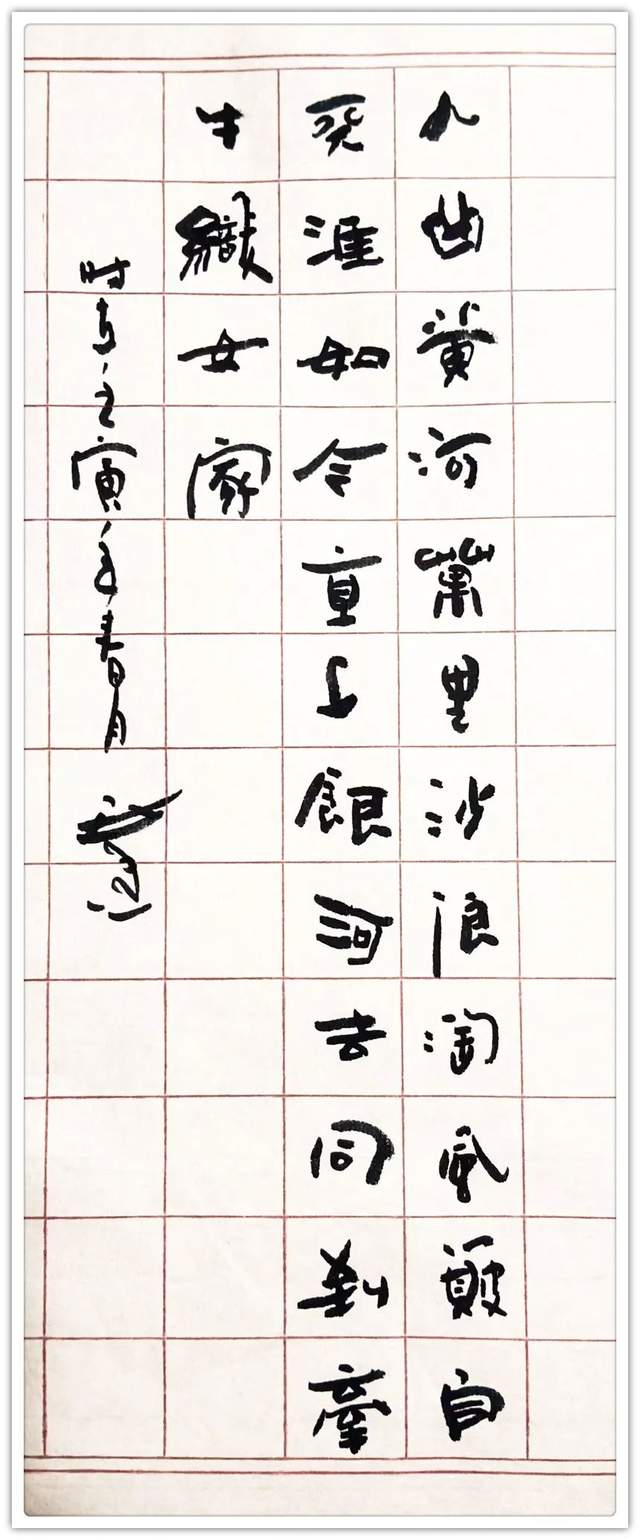 九曲黃河萬里沙浪淘風簸自
天涯如今直上銀河去同到牽
牛織女家
时在壬寅年春月